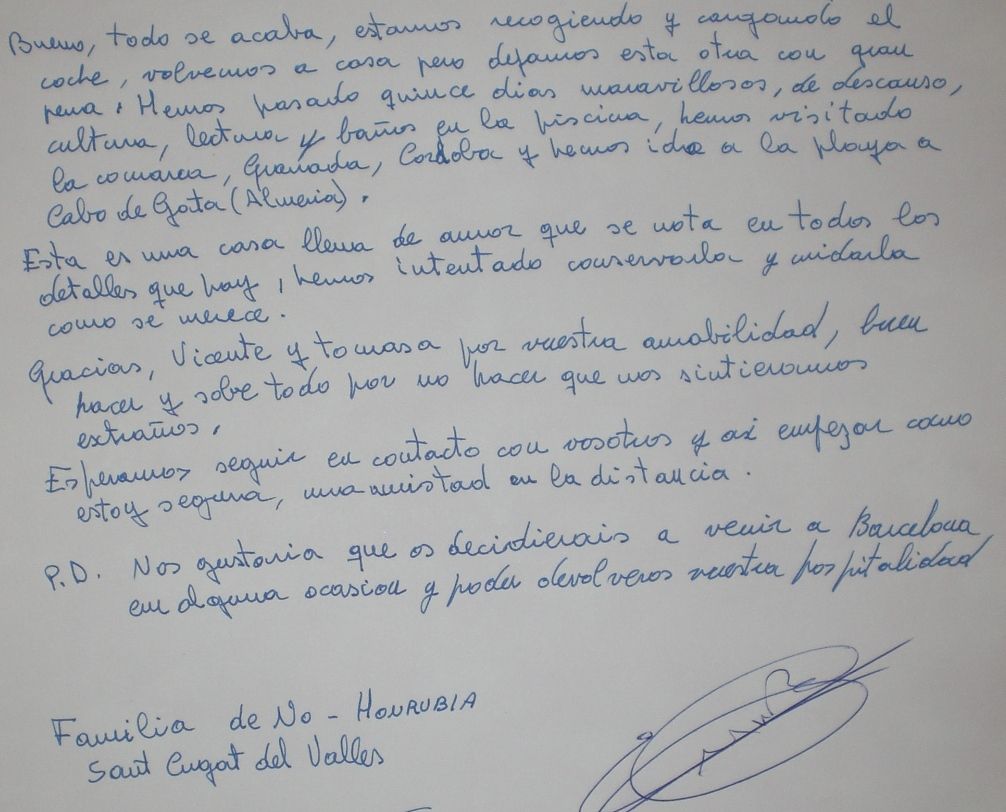 Bueno, todo se acaba, estamos recogiendo y cargando el
coche, volvemos a casa pero dejamos esta otra con gran
pena. Hemos pasado quince dias maravillosos, de descanso,
cultura, lectura y baños en la piscina, hemos visitado
la comarca, Granada, Cordoba y hemos ido a la playa a
Cabo de Gata (Almeria).
Esta es una casa llena de amor que se nota en todos los
detalles que hay, hemos intentado conservarla y cuidarla
como se merece.
Gracias, Vicente y Tomasa por vuestra amabilidad, buen
hacer y sobre todo por no hacer que nos sintieramos
extraños.
Esperamos seguir en contacto con vosotros y asi empezar como
estoy segura, una amistad en la distancia.
P.D. Nos gustaria que os decidierais a venir a Barcelona
en alguna ocasion y poder devolveros vuestra hospitalidad
Familia de No - HONRUBIA
Sant Cugat del Valles